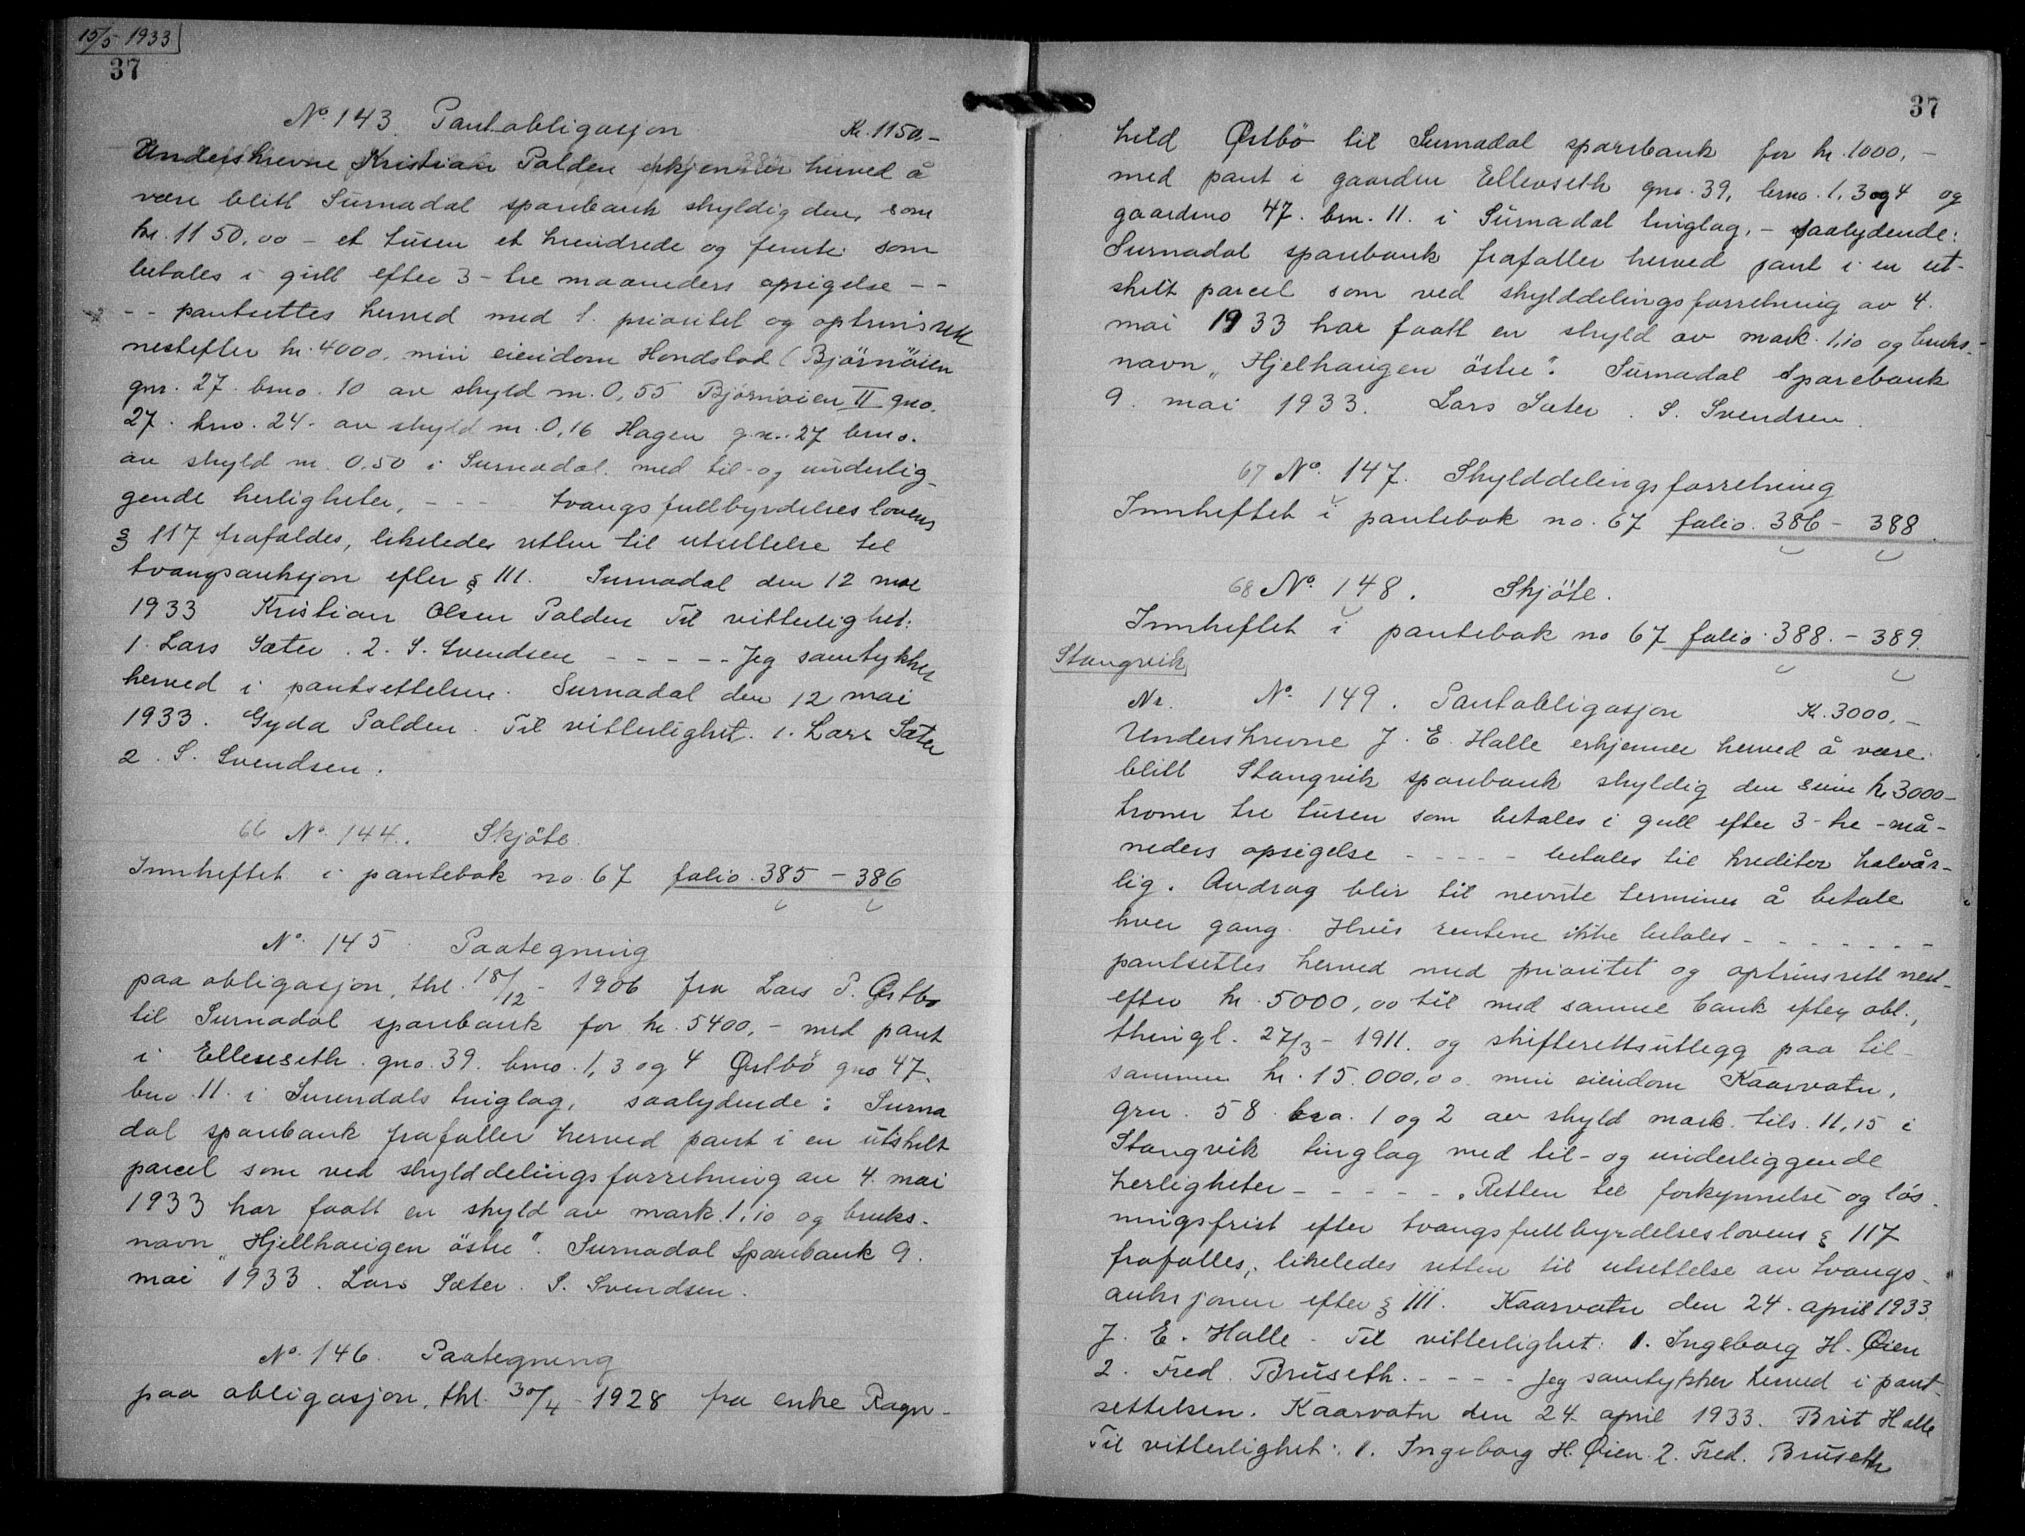 15/5 1933
37
No. 143. Pantobligasjon Kr. 1150.-
Underskrevne Kristian Polden erkjenner herved å
være blitt Surnadal sparebank skyldig den som
kr. 1150,00 - et tusen et hundrede og femti som
betales i gull efter 3 - tre maaneders opsigelse - -
- - pantsettes herved med 1. prioritet og optrinsrett
nestefter kr. 4000. min eiendom Hondslod (Bjørnöien
gnr. 27. brno. 10 av skyld m. 0,55 Bjørnöien II gno.
27. brno. 24. av skyld m. 0,16 Hagen gnr. 27 brno.
av skyld m. 0.50 i Surnadal med til- og underlig-
gende herligheter, - - - tvangsfullbyrdelseslovens
§ 117 frafaldes, likeledes retten til utsettelse tel
tvangsauksjon efter § 111. Surnadal den 12 mai
1933 Kristian Olsen Polden Til vitterlighet:
1. Lars Sæter. 2. S. Svendsen - - - - - Jeg samtykker
herved i pantsettelsen. Surnadal den 12 mai
1933. Gyda Polden. Til vitterlighet. 1. Lars Sæter
2. S. Svendsen.
66 No. 144. Skjöte.
Innheftet i pantebok no. 67 folio. 385 - 386
No. 145. Paategning
paa obligasjon, thl. 18/12 - 1906 fra Lars P. Østbø
til Surnadal sparebank for kr. 5400,- med pant
i Ellevseth. gno. 39. brno. 1, 3 og 4 Østbö gno 47.
bno. 11. i Surendals tinglag, saalydende: Surna
dal sparebank frafaller herved pant i en utskilt
parcel som ved skylddelingsforretning av 4. mai
1933 har faatt en skyld av mark. 1,10 og bruks-
navn "Hjellhaugen östre". Surnadal Sparebank 9.
mai 1933. Lars Sæter. S. Svendsen.
No. 146. Paategning
paa obligasjon, thl. 30/4 - 1928 fra enke Ragn-
37
hild Østbö til Surnadal sparebank for kr. 1000,-
med pant i gaarden Ellevseth gno. 39, brno. 1, 3 og 4 og
gaardno 47. brn. 11. i Surnadal tinglag. - saalydende:
Surnadal sparebank frafaller herved pant i en ut-
skilt parcel som ved skylddelingsforretning av 4.
mai 1933 har faatt en skyld av mark. 1,10 og bruks-
navn "Hjelhaugen östre". Surnadal Sparebank
9. mai 1933. Lars Sæter. S. Svendsen.
67 No. 147. Skylddelingsforretning
Innheftet i pantebok no. 67 folio. 386 - 388.
68 No. 148. Skjöte.
Innheftet i pantebok no 67 folio. 388. - 389.
Stangvik
Nr. No. 149. Pantobligasjon Kr. 3000,-
Underskrevne J. E. Halle erkjenner herved å være
blitt Stangvik sparebank skyldig den sum kr 3000-
kroner tre tusen som betales i gull efter 3 - tre - må-
neders opsigelse - - - - - betales til kreditor halvår-
lig. Avdrag blir til nevnte terminer å betale
hver gang. Hvis rentene ikke betales - - - - - - -
pantsettes herved med prioritet og optrinsrett nest-
efter kr. 5000,00 til med samme bank efter obl.,
thingl. 27/3 - 1911. og skifterettsutlegg paa til-
sammen kr. 15.000,00 min eiendom Kaarvatn,
grn. 58 bra. 1 og 2 av skyld mark. tils. 11,15 i
Stangvik tinglag med til- og underliggende
herligheter - - - - -. Retten til forkynnelse og løs-
ningsfrist efter tvangsfullbyrdelseslovens § 117
frafalles, likeledes retten til utsettelse av tvangs-
auksjonen efter § 111. Kaarvatn den 24. april 1933.
J. E. Halle - Til vitterlighet: 1. Ingeborg H. Øien
2. Fred. Bruseth. - - - - Jeg samtykker herved i pant-
settelsen. Kaarvatn den 24. april 1933. Brit Halle
Til vitterlighet: 1. Ingeborg H. Øien 2. Fred. Bruseth